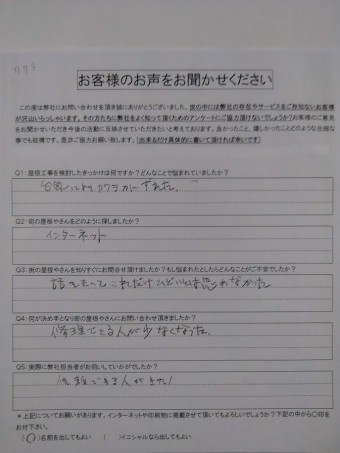 773
お客様のお声をお聞かせください
この度は弊社にお問い合わせを頂き誠にありがとうございました。世の中には弊社の存在やサービスをご存知ないお客様
が沢山いらっしゃいます。その方たちに弊社をよく知って頂くためのアンケートにご協力頂けないでしょうか?お客様のご意見
をお聞かせいただき今後の活動に反映させていただきたいと考えております。良かったこと、嬉しかったことどのような些細な
事でも結構です。是非ご協力お願い致します。「出来るだけ具体的に書いて頂ければ幸いです」
Q1:屋根工事を検討したきっかけは何ですか?どんなことで悩まれていましたか?
台風によりカワラがずれた。
Q2:街の屋根やさんをどのように探しましたか?
インターネット
Q3:街の屋根やさんを知りすぐにお問合せ頂けましたか?もし悩まれたとしたらどんなことがご不安でしたか?
これだけひどいとは思わなかった
Q4:何が決め手となり街の屋根やさんにお問い合わせ頂きましたか?
修理できる人が少なくなった。
Q5:実際に弊社担当者がお伺いしていかがでしたか?
信頼できる人がきた!
*上記についてお願いがあります。インターネットや印刷物に掲載させて頂いてもよろしいでしょうか?下記の中から〇印を
お付下さい。
(〇)名前を出してもよい ( )イニシャルなら出してもよい